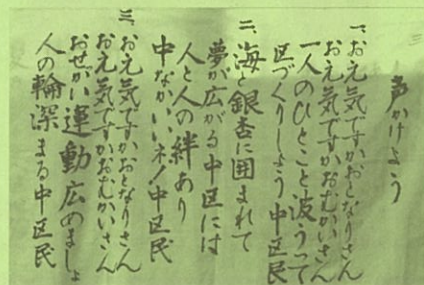 声かけよう
一、お元気ですかおとなりさん
お元気ですかおむかいさん
一人のひとこと波うって
区づくりしよう中区民
二、海と銀杏に囲まれて
夢が広がる中区には
人と人の絆あり
中なかいいネ!中区民
三、お元気ですかおとなりさん
お元気ですかおむかいさん
おせかい運動広めましょ
人の輪深まる中区民